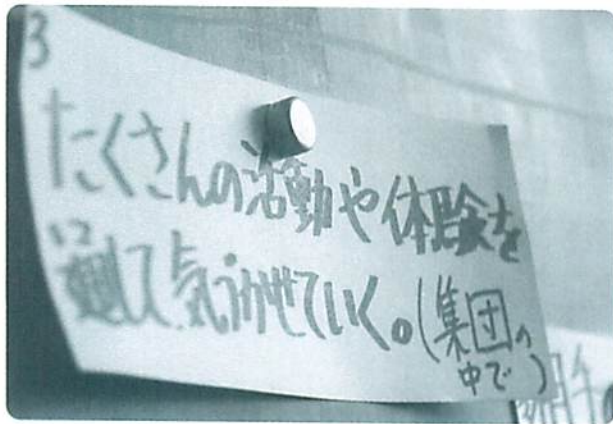 3
たくさんの活動や体験を
通して気づかせていく。(集団の
中で)
相手の